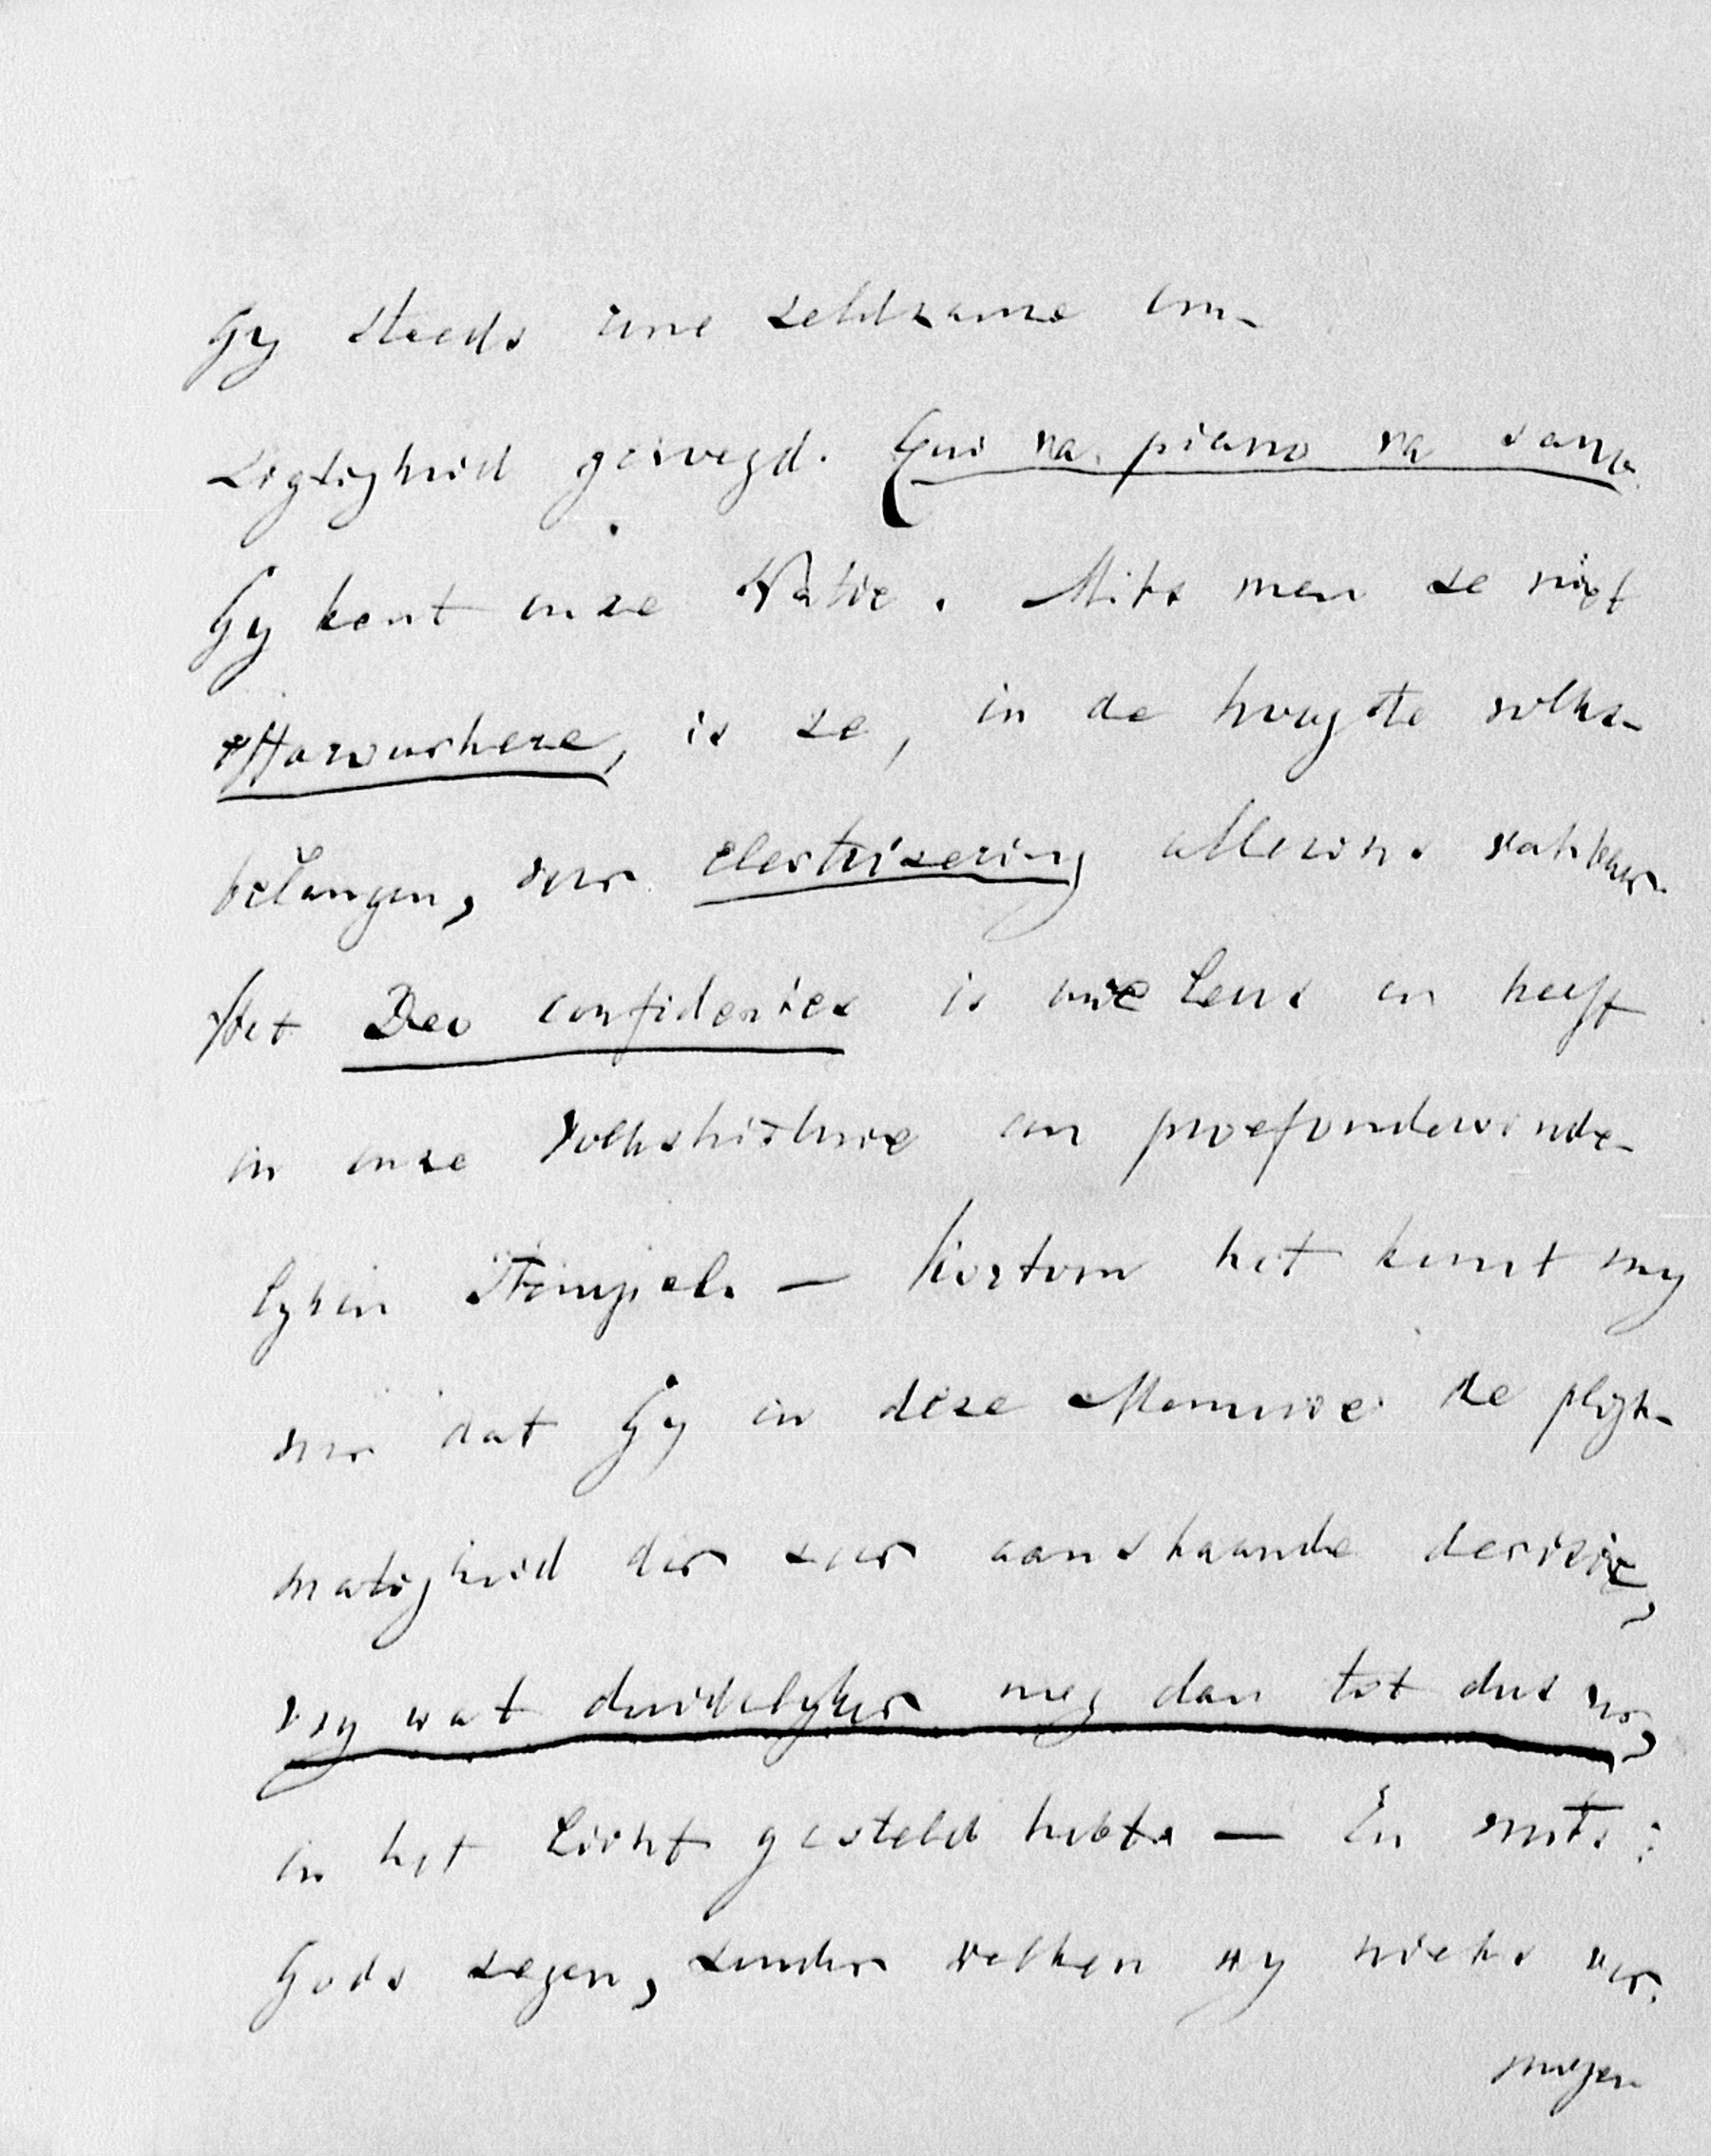 Gy steeds eene seldzame om-
zigtigheid gevoegd. Qui va piano va sano
Gy kent onze Natie. Mits men ze niet
effarouchere, is ze, in de hoogste volks-
belangen, voor electrisering alleszins vatbaar.
Het Deo confidentes is onze Leus en heeft
in onze Volkshistorie een proefondervinde-
lyken Stempel. — Kortom het komt my
voor dat Gy in deze Memorie de pligt-
matigheid der zeer aanstaande decisie,
vry wat duidelyker nog dan tot dus ver,
in het Licht gesteld hebt. — En mits:
Gods zegen, zonder welken wy niets ver-
mogen